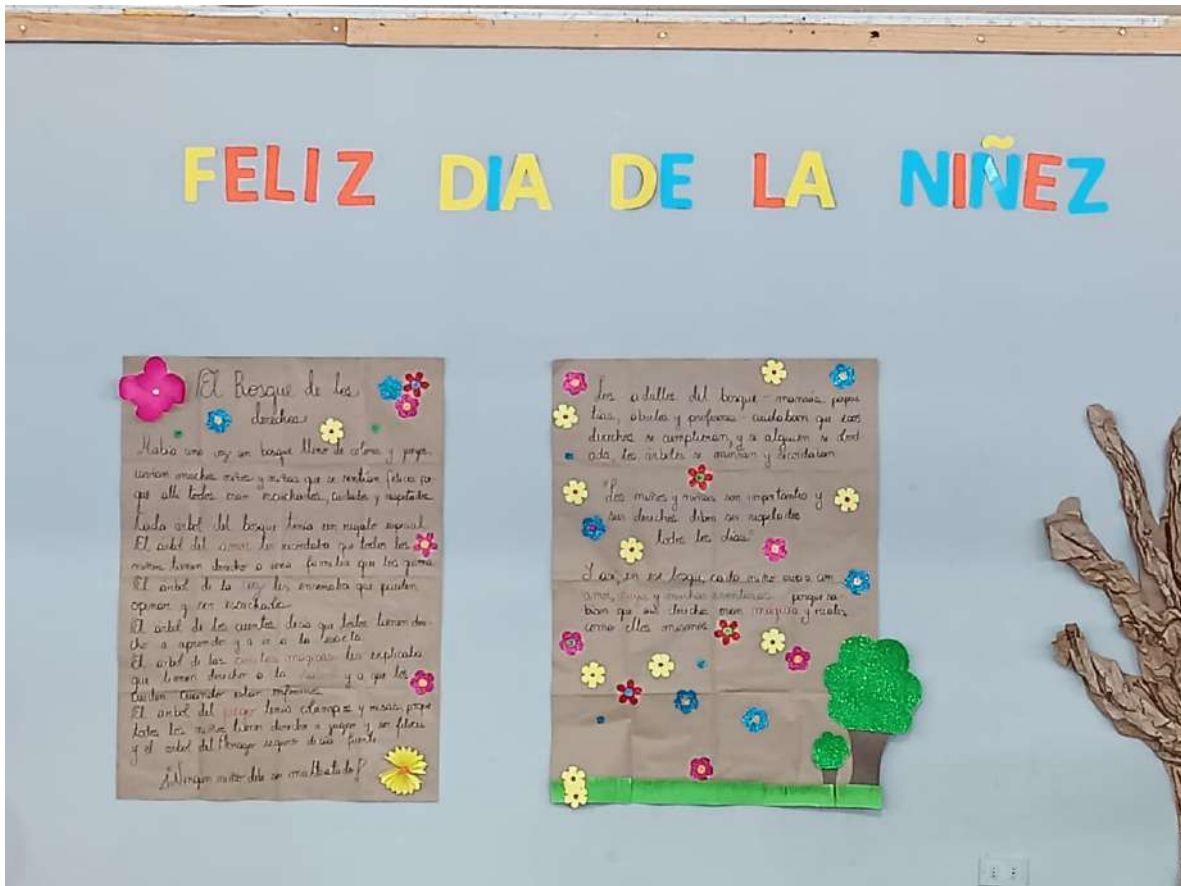 FELIZ DIA DE LA NIÑEZ
El Bosque de los
derechos
Había una vez un bosque lleno de colores y juegos
vivían muchos niños y niñas que se sentían felices por
que allí todos eran escuchados, cuidados y respetados
Cada arbol del bosque tenía un regalo especial
El arbol del amor les recordaba que todos los
niños tienen derecho a una familia que los quiera
El arbol de la voz les enseñaba que pueden
opinar y ser escuchados
El arbol de los cuentos decia que todos tienen dere-
cho a aprender y a ir a la escuela
El arbol de las magicas les explicaba
que tienen derecho a la y a que los
cuiden cuando estan enfermos
El arbol del juego tenía columpios y risas, porque
todos los niños tienen derecho a jugar y ser felices
y el arbol del seguro decia fuerte
¡Ningun niño debe ser maltratado!
Los adultos del bosque - mamás, papas
tias, abuelos y profesoras - cuidaban que esos
derechos se cumplieran, y si alguien se olvid
aba, los arboles se y recordaban
"Los niños y niñas son importantes y
sus derechos deben ser respetados
todos los días"
Y asi, en ese bosque, cada niño con
amor, y muchas aventuras porque sa-
bian que sus derechos eran magicos y reales
como ellos mismos